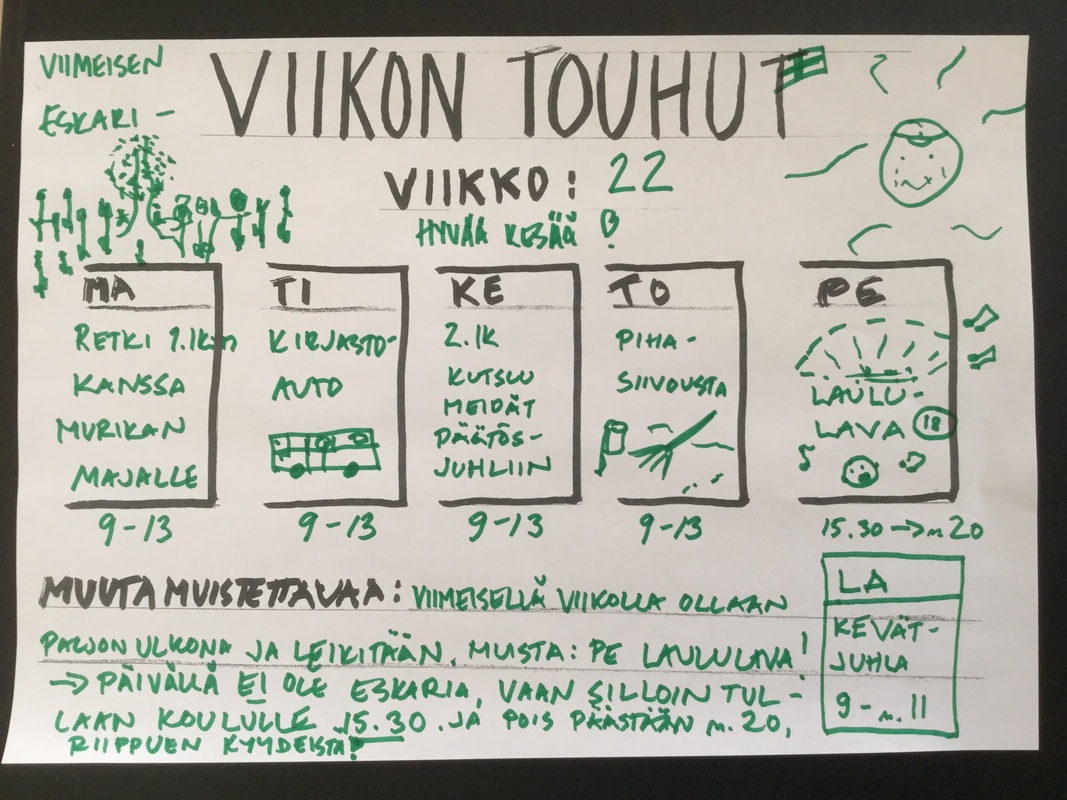 VIIMEISEN
ESKARI-
VIIKON TOUHUT
VIIKKO: 22
HYVÄÄ KESÄÄ!
MA
RETKI 1.lk:n
KANSSA
MURIKAN
MAJALLE
9-13
TI
KIRJASTO-
AUTO
9-13
KE
2.lk
KUTSUU
MEIDÄT
PÄÄTÖS-
JUHLIIN
9-13
TO
PIHA-
SIIVOUSTA
9-13
PE
LAULU-
LAVA 18
15.30 → n. 20
LA
KEVÄT-
JUHLA
9 - n. 11
MUUTA MUISTETTAVAA: VIIMEISELLÄ VIIKOLLA OLLAAN
PALJON ULKONA JA LEIKITÄÄN. MUISTA: PE LAULULAVA!
→ PÄIVÄLLÄ EI OLE ESKARIA, VAAN SILLOIN TUL-
LAAN KOULULLE 15.30. JA POIS PÄÄSTÄÄN n. 20,
RIIPPUEN KYYDEISTÄ!